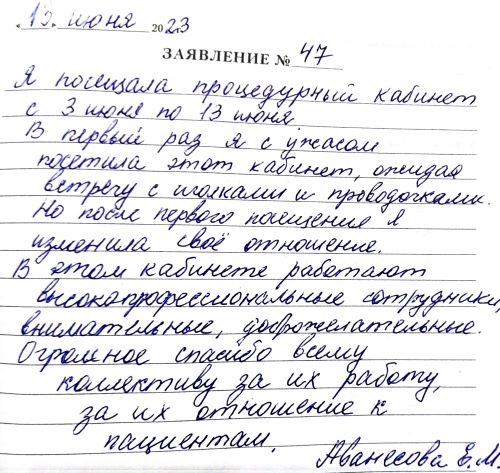 « 13. июня 2023
ЗАЯВЛЕНИЕ № 47
Я посещала процедурный кабинет
с 3 июня по 13 июня
В первый раз я с ужасом
посетила этот кабинет, ожидая
встречу с иголками и проводочками.
Но после первого посещения я
изменила своё отношение.
В этом кабинете работают
высокопрофессиональные сотрудники,
внимательные, доброжелательные.
Огромное спасибо всему
коллективу за их работу,
за их отношение к
пациентам.
Аванесова Е.М.